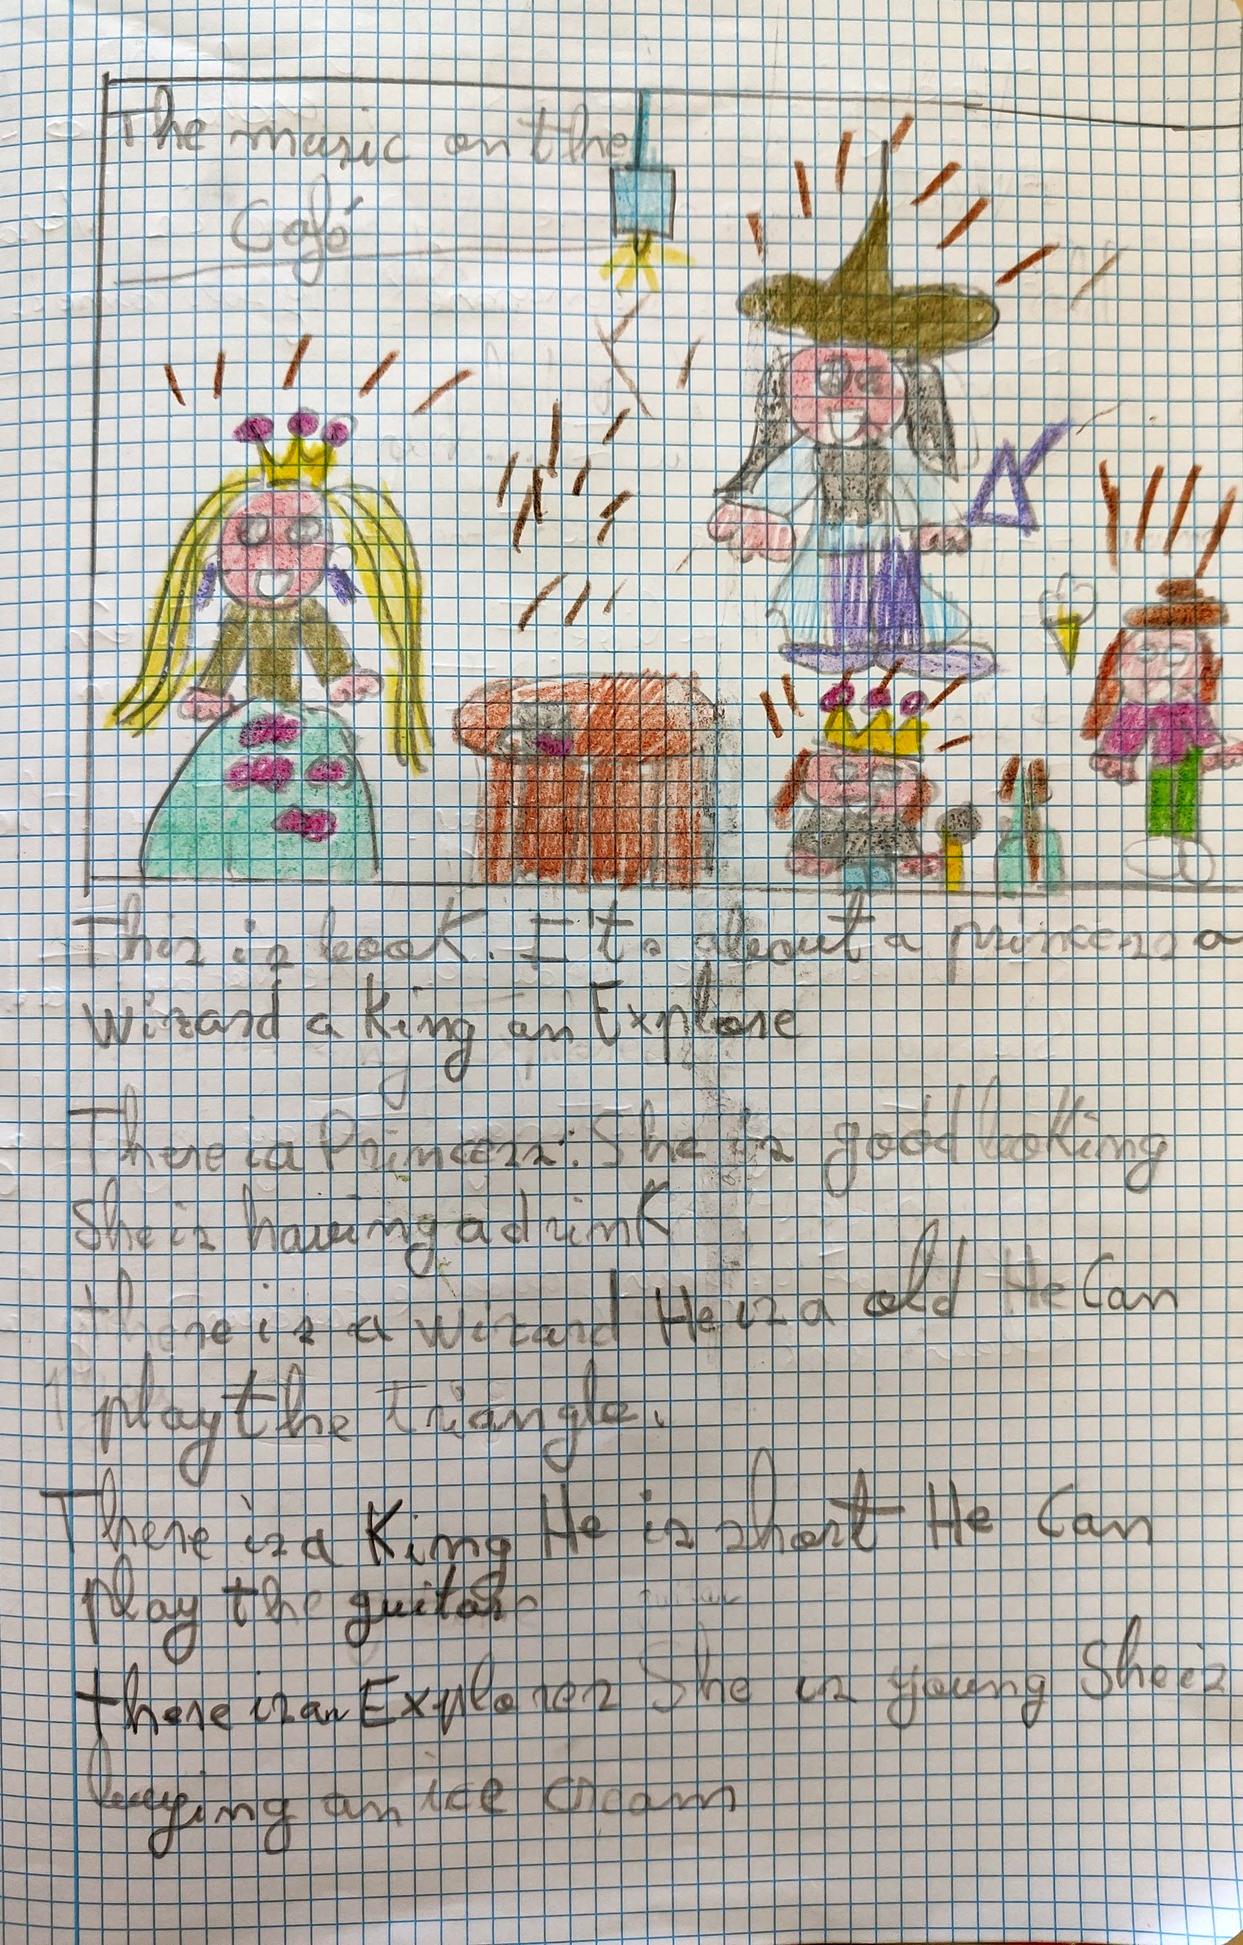 The music on the
Café
This is book. It's about a princess a
wizard a King an Explore
There is a Princess: She is good looking
She is having a drink
there is a wizard He is a old He Can
play the triangle.
There is a King He is short He Can
play the guitar
there is an Explorer She is young She is
buying an ice cream